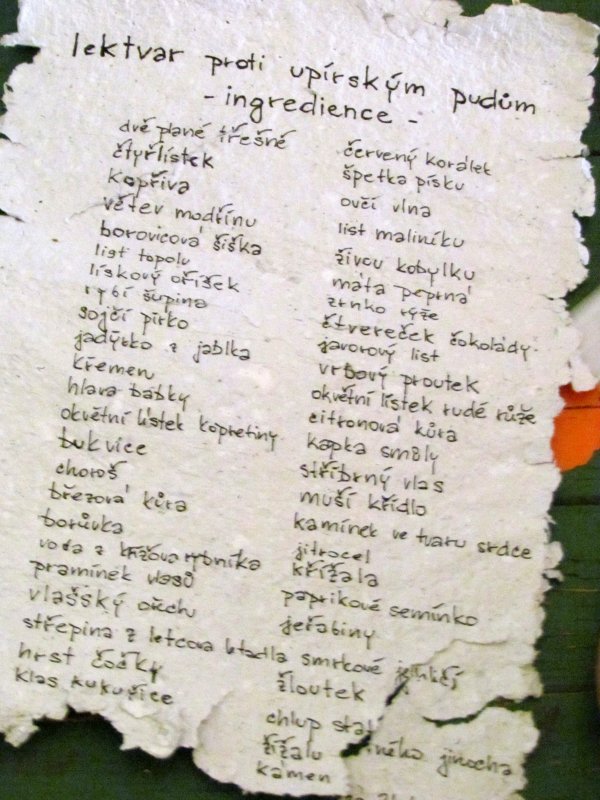 lektvar proti upírským pudům
- ingredience -
dvě plané třešně
čtyřlístek
kopřiva
větev modřínu
borovicová šiška
list topolu
lískový oříšek
rybí šupina
sojčí pírko
jadýrko z jablka
křemen
hlava bábky
okvětní lístek kopretiny
bukvice
choroš
březová kůra
borůvka
voda z rybníka
pramínek vlasů
vlašský ořech
střepina z letcova
hrst čočky
klas kukuřice
červený korálek
špetka písku
ovčí vlna
list maliníku
živou kobylku
máta peprná
zrnko rýže
čtvereček čokolády
javorový list
vrbový proutek
okvětní lístek rudé růže
citronová kůra
kapka smůly
stříbrný vlas
muší křídlo
kamínek ve tvaru srdce
jitrocel
křížala
paprikové semínko
jeřabiny
smrkové jehličí
žloutek
chlup jinocha
žížalu
kámen